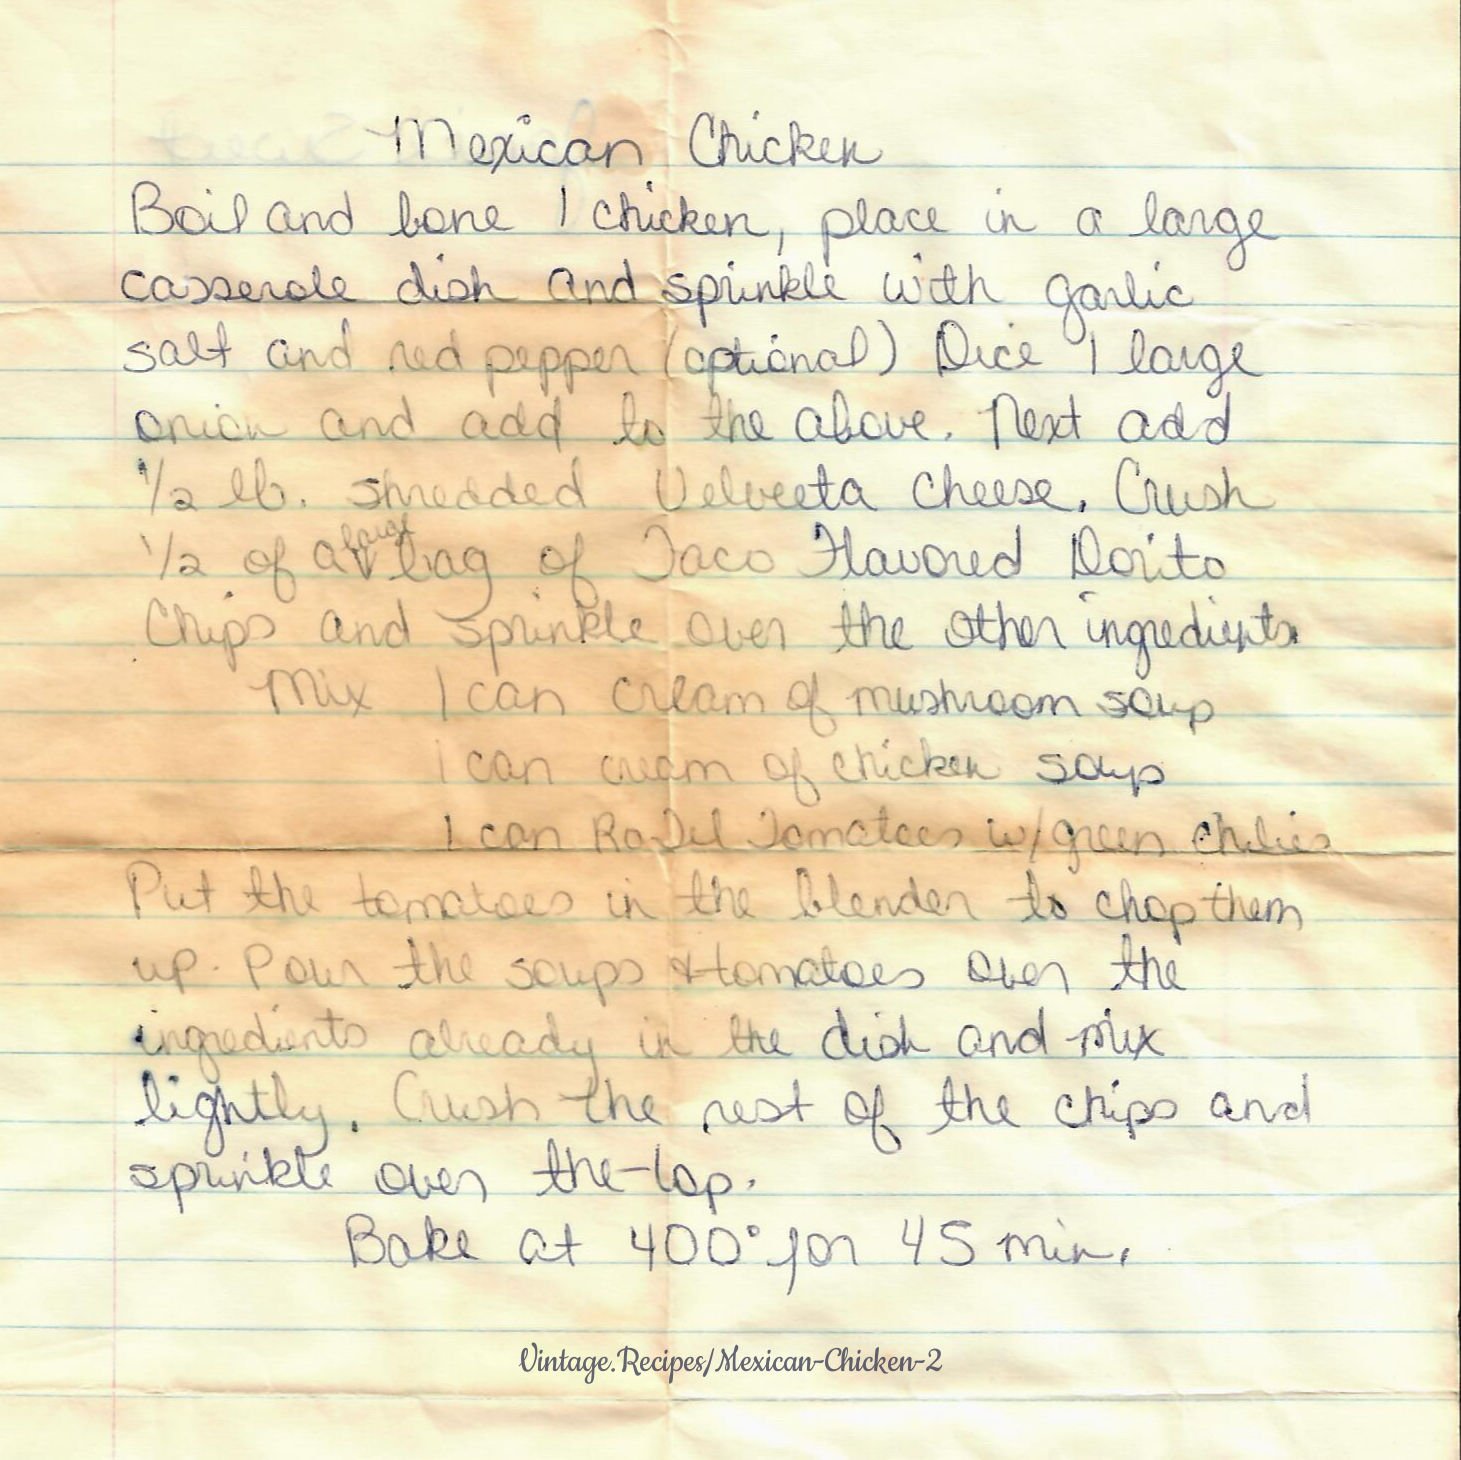 Mexican Chicken
Boil and bone 1 chicken, place in a large
casserole dish and sprinkle with garlic
salt and red pepper (optional) Dice 1 large
onion and add to the above. Next add
1/2 lb. shredded Velveeta cheese. Crush
1/2 of a large bag of Taco Flavored Dorito
Chips and sprinkle over the other ingredients.
Mix 1 can cream of mushroom soup
1 can cream of chicken soup
1 can RoTel Tomatoes w/green chilies
Put the tomatoes in the blender to chop them
up. Pour the soups & tomatoes over the
ingredients already in the dish and mix
lightly. Crush the rest of the chips and
sprinkle over the top.
Bake at 400° for 45 min.
Vintage.Recipes/Mexican-Chicken-2